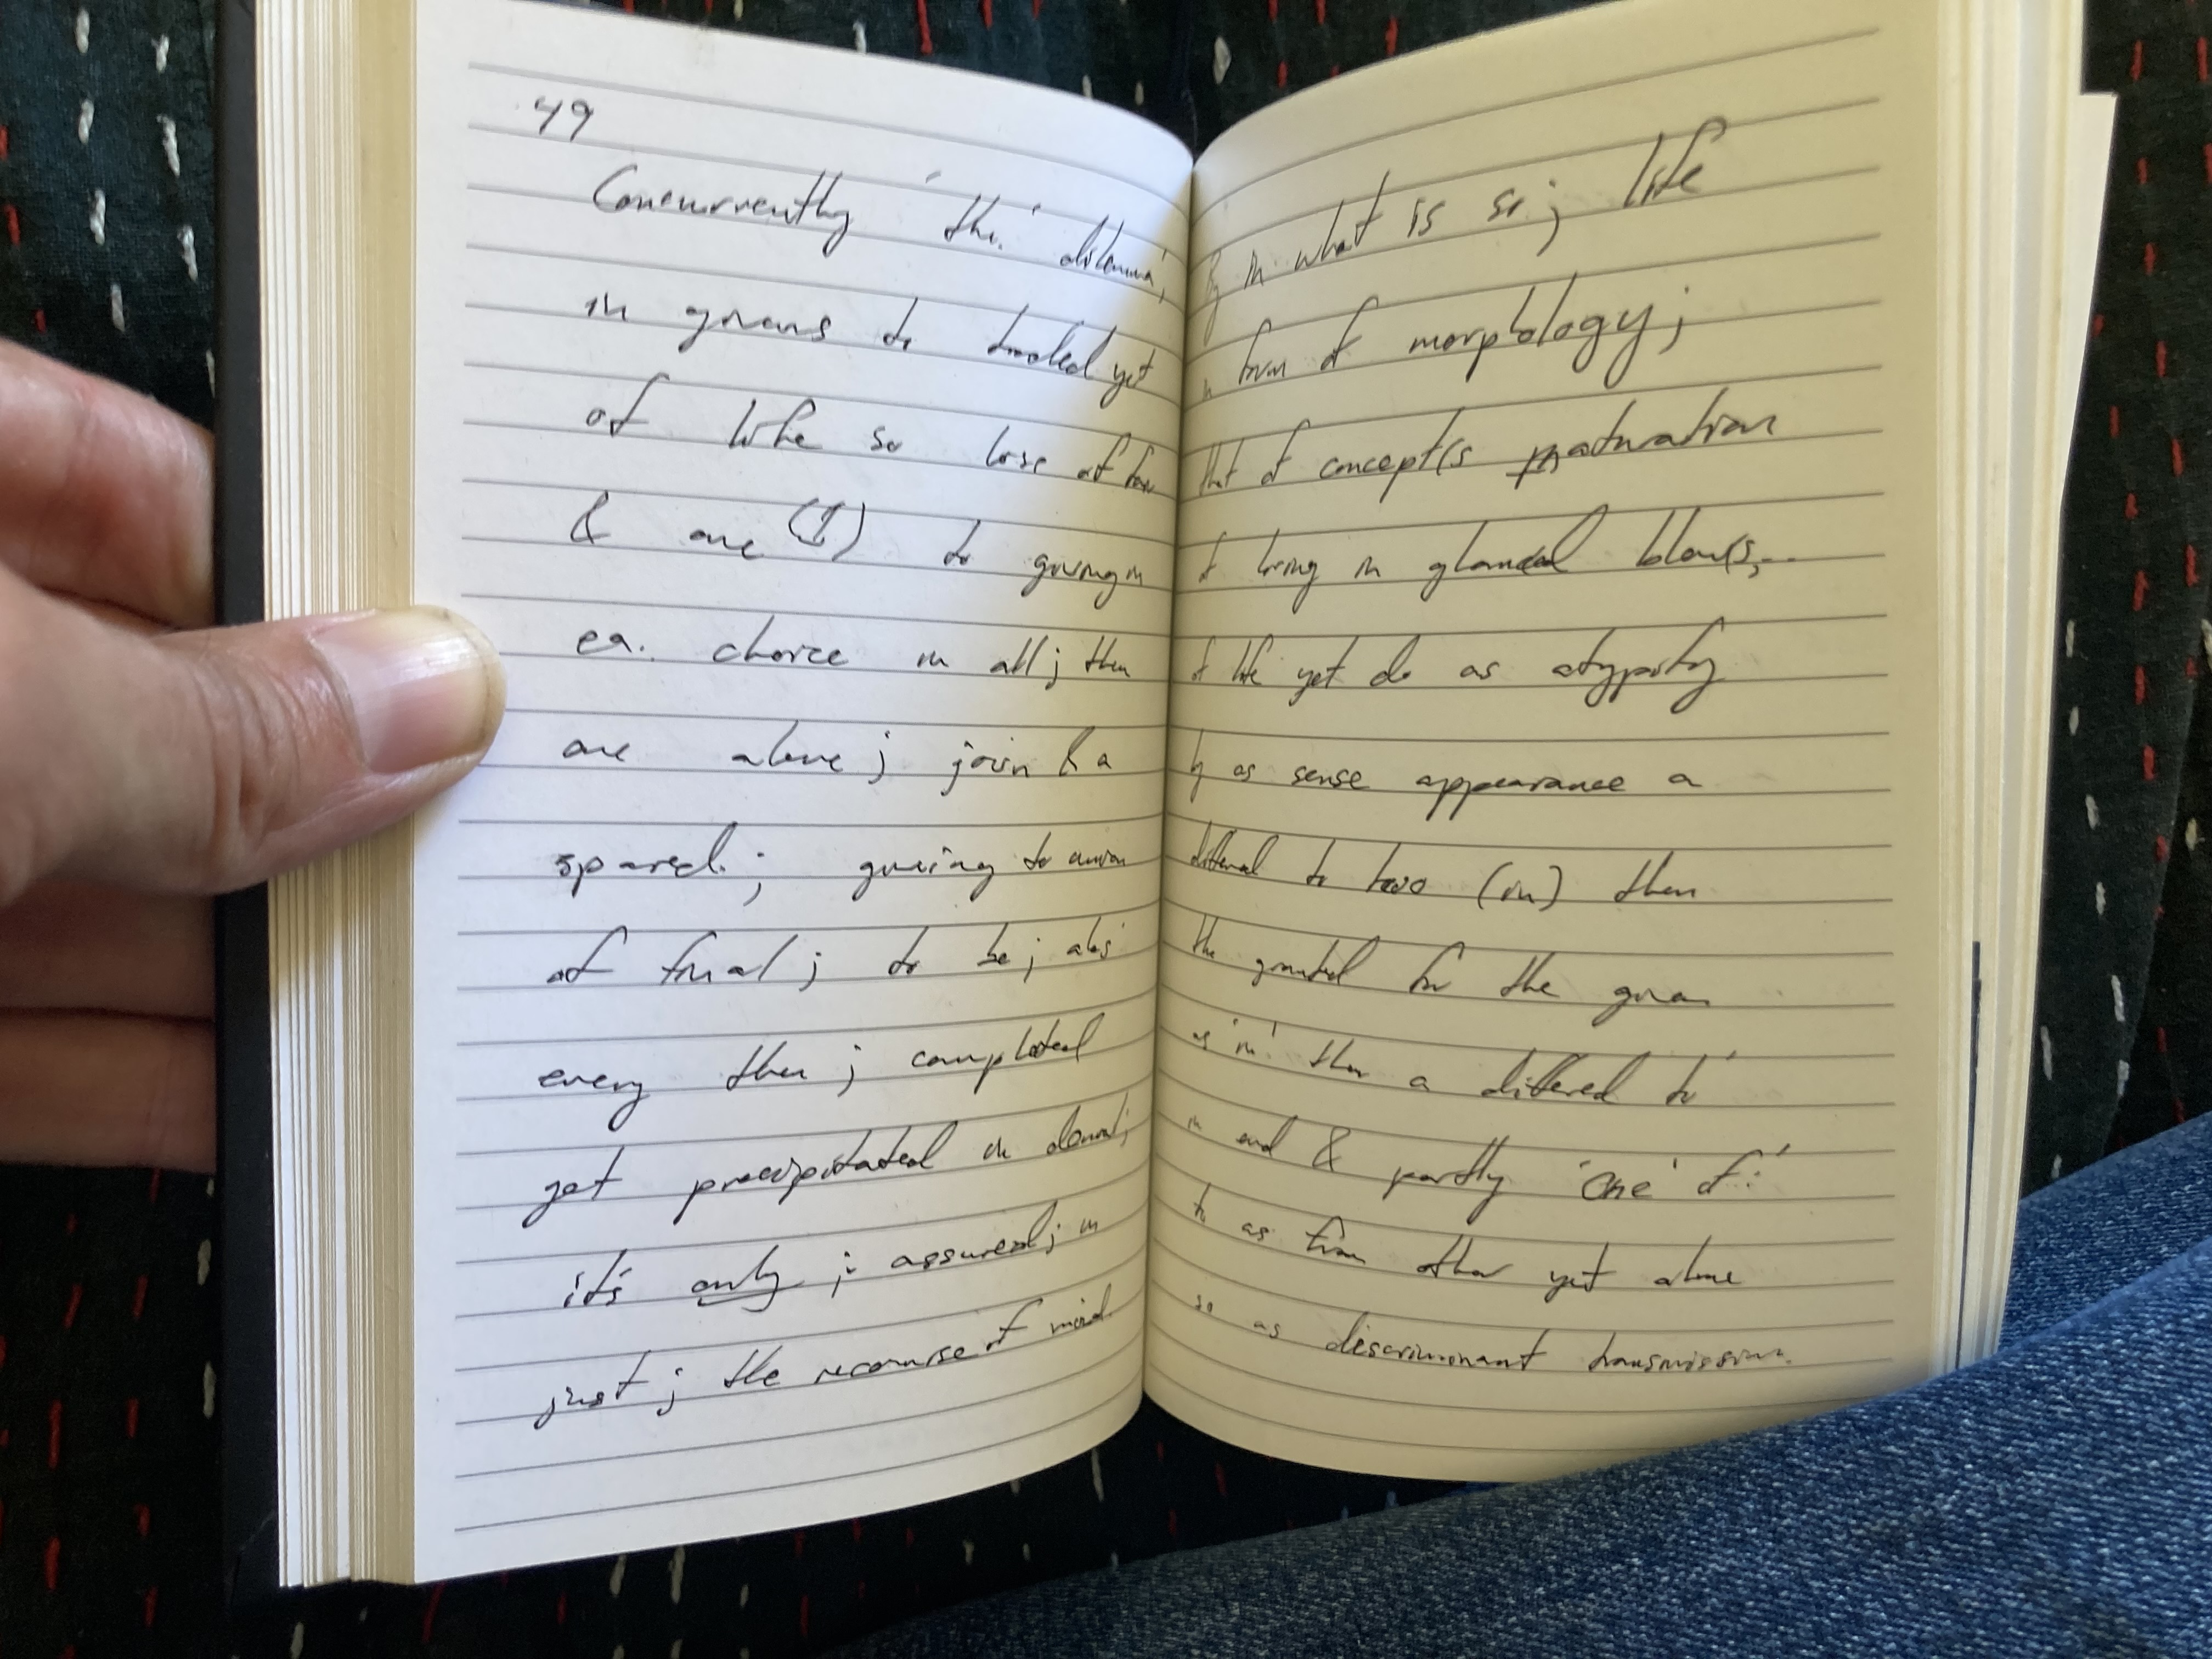 49
Concurrently 'this' dilemma;
in givens to tooled yet
of life so lose of for
& one (I) to giving in
ea. choice in all; then
are alone; join & a
spared.; giving to union
of final; to be; 'abs'
every then; completed
yet precipitated in denial;
it's only; assured; in
just; the recourse of mind.
By in what is so; life
in form of morphology;
that of concept(s maturation
of living in glanced
of life yet do as atypity
by as sense appearance a
differed to two (in) then
the granted for the given
as 'in' then a differed to'
in end & partly 'One' of:'
to as from other yet alone
so as discriminant transmission.